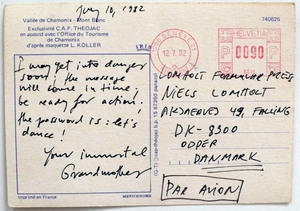 July 10, 1982
Vallée de Chamonix - Mont Blanc
Exclusivité C.A.F. THEOJAC
en accord avec l'Office du Tourisme
de Chamonix
d'après maquette L. KOLLER
740626
12.7.82
HELVETIA
0090
I may get into danger
soon! the message
will come in time,
be ready for action.
the password is: let's
dance!
Your immortal
Grandmother
LOMHOLT FORMULAR PRESS
NIELS LOMHOLT
FALLING
DK-8300
ODDER
DANMARK
PAR AVION
Imprimé en France